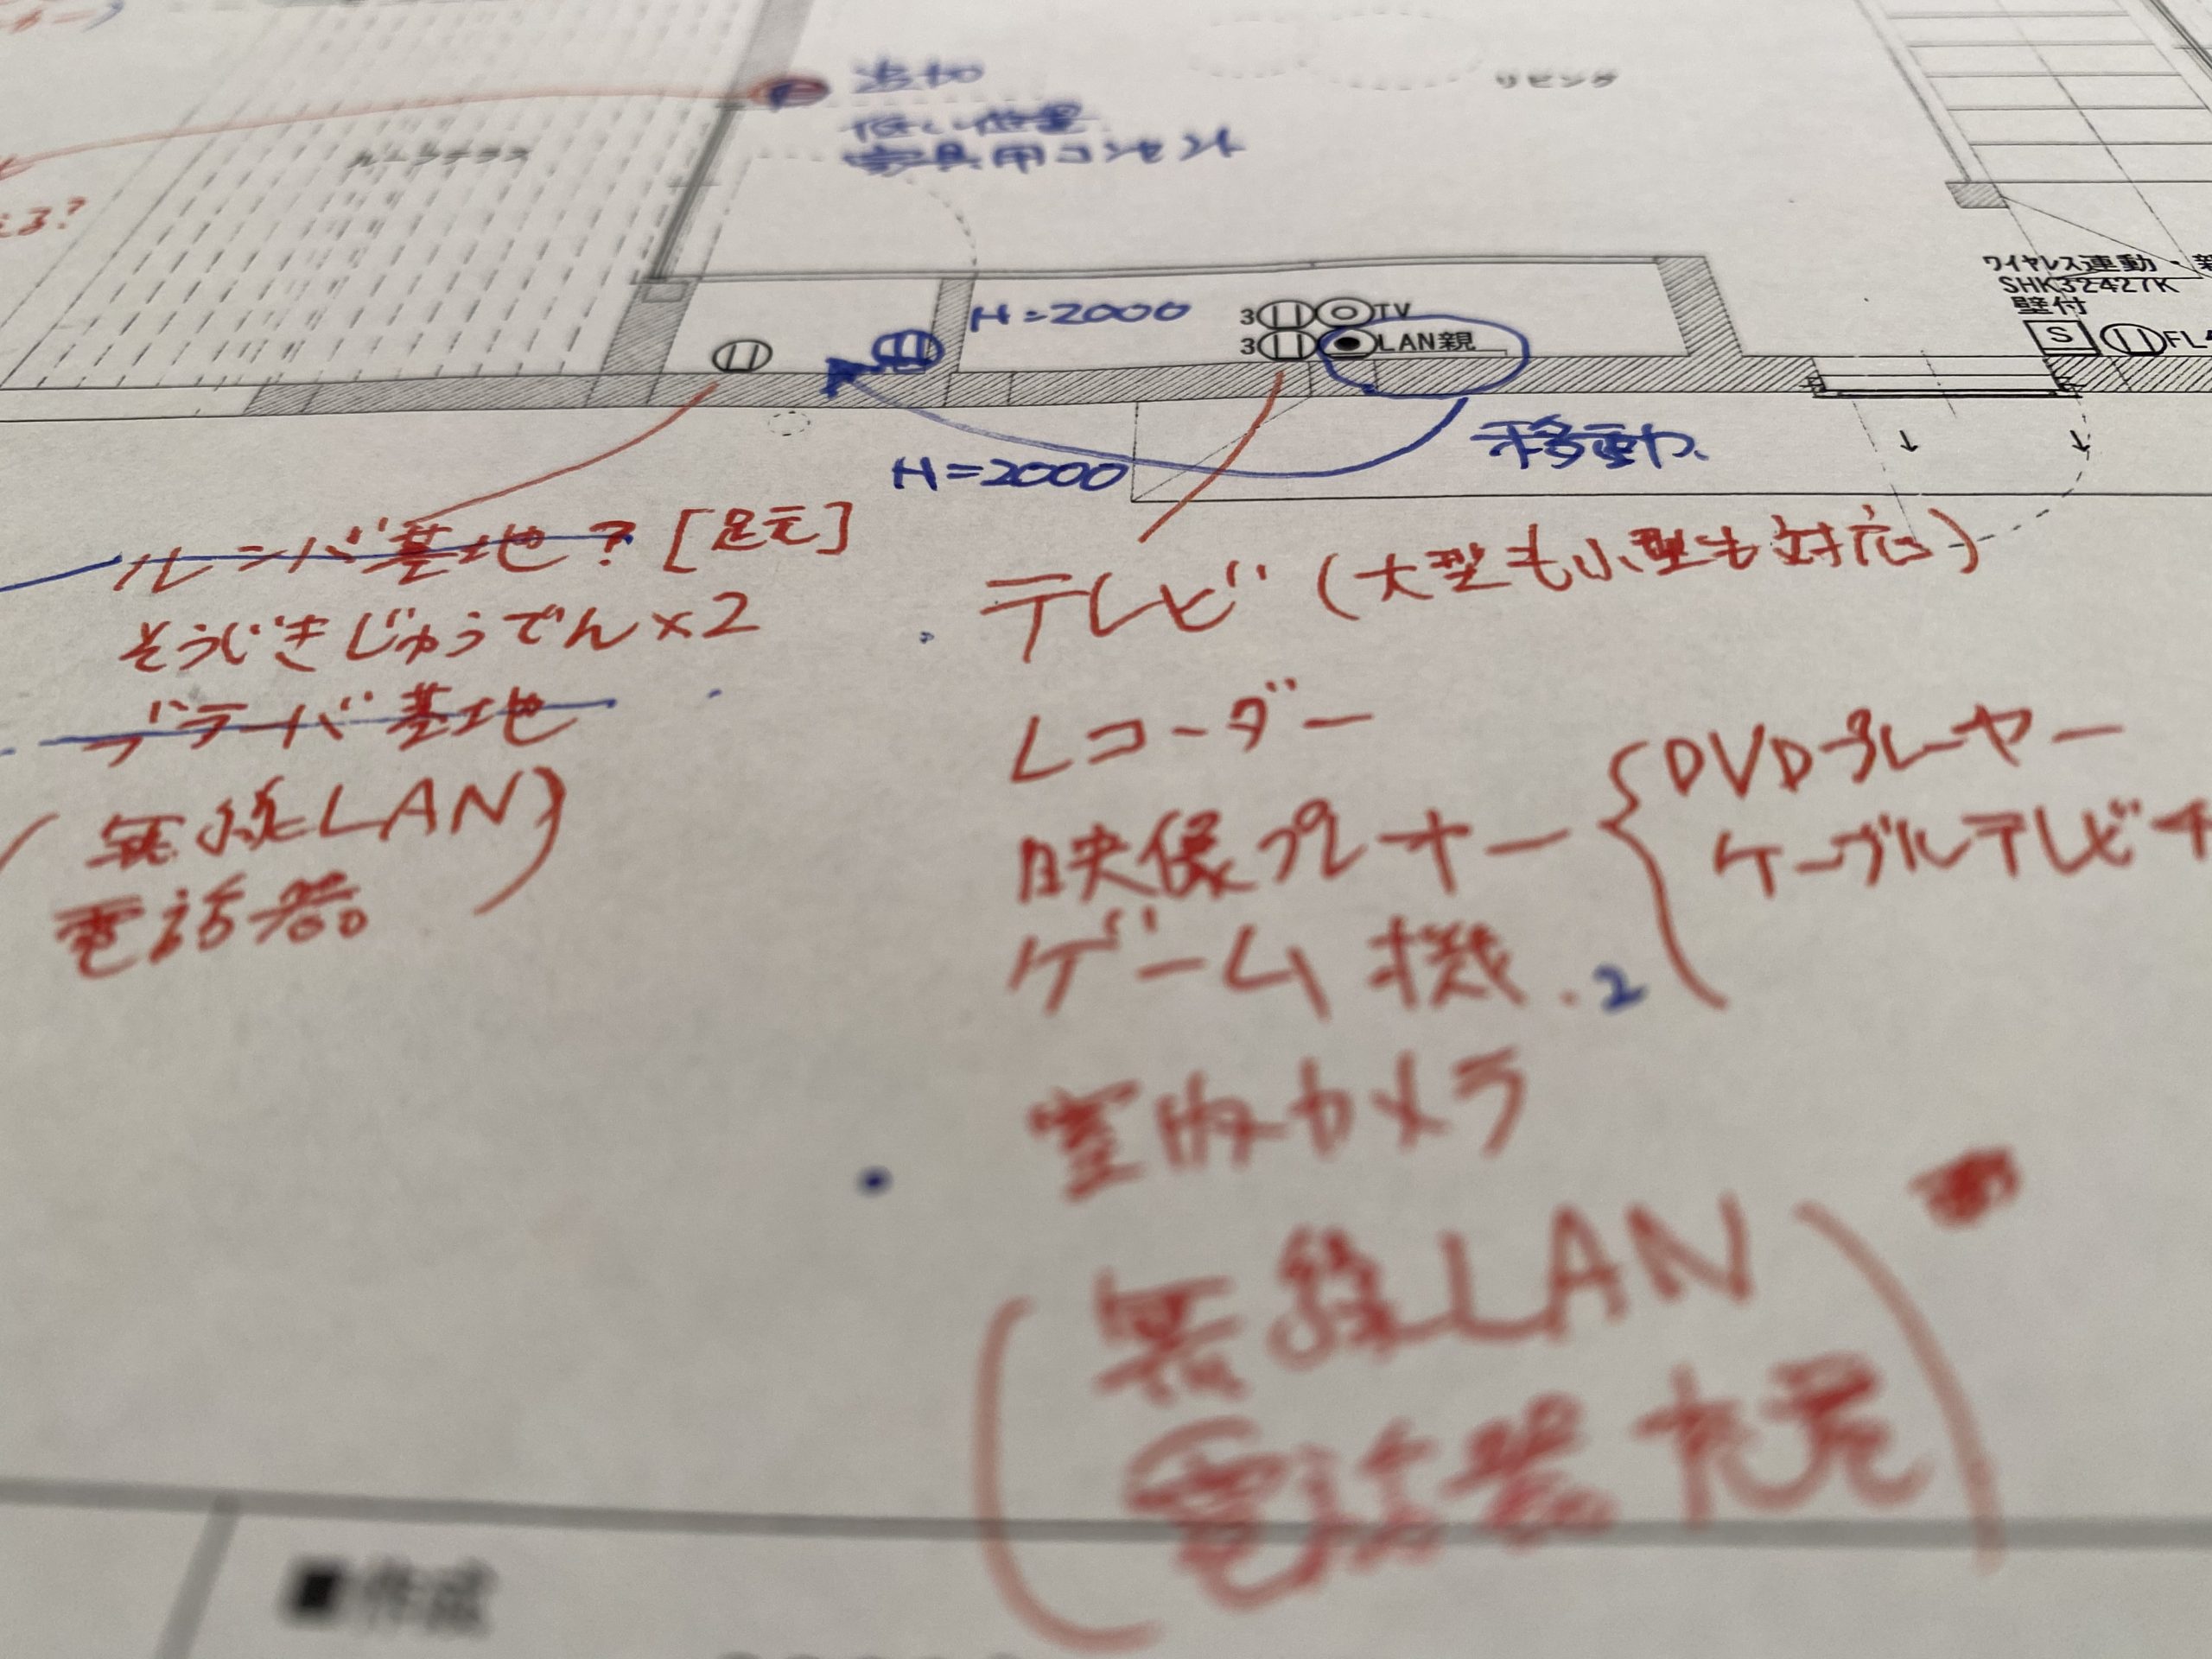 追加
リビング
低い位置
家具用コンセント
ルーフテラス
える?
ワイヤレス連動・
SHK32427K
壁付
H=2000
3 TV
3 LAN親
S FL
移動
H=2000
ルンバ基地? [足元]
そうじきじゅうでん×2
ブラーバ基地
(無線LAN)
電話器
テレビ (大型も小型も対応)
レコーダー
映像プレイヤー
DVDプレーヤー
ケーブルテレビチ
ゲーム機 . 2
室内カメラ
(無線LAN
電話器 充電)
■作成